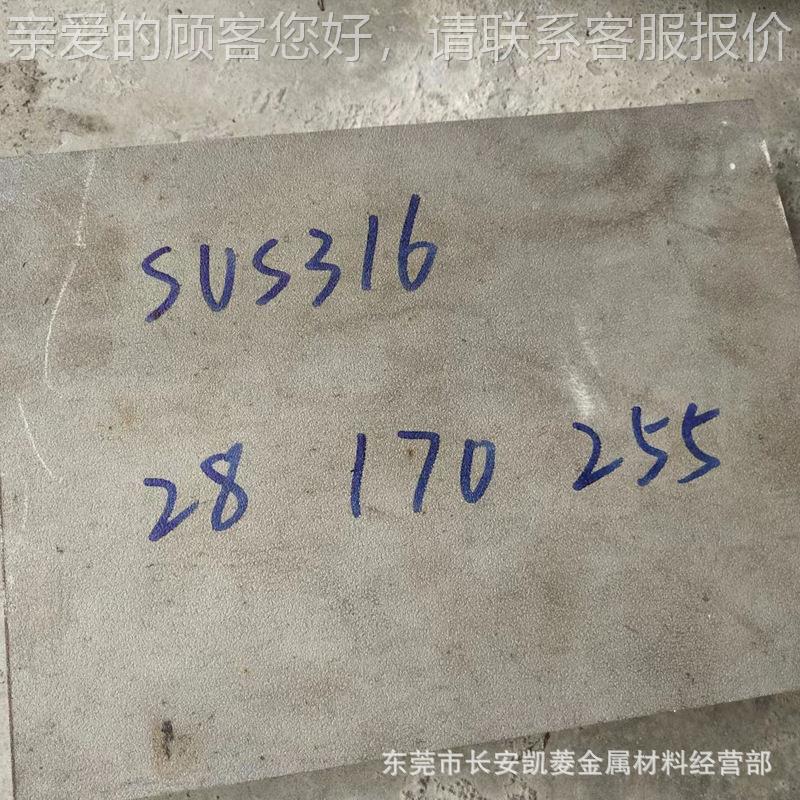 亲爱的顾客您好，请联系客服报价
SUS316
28 170 255
东莞市长安凯菱金属材料经营部